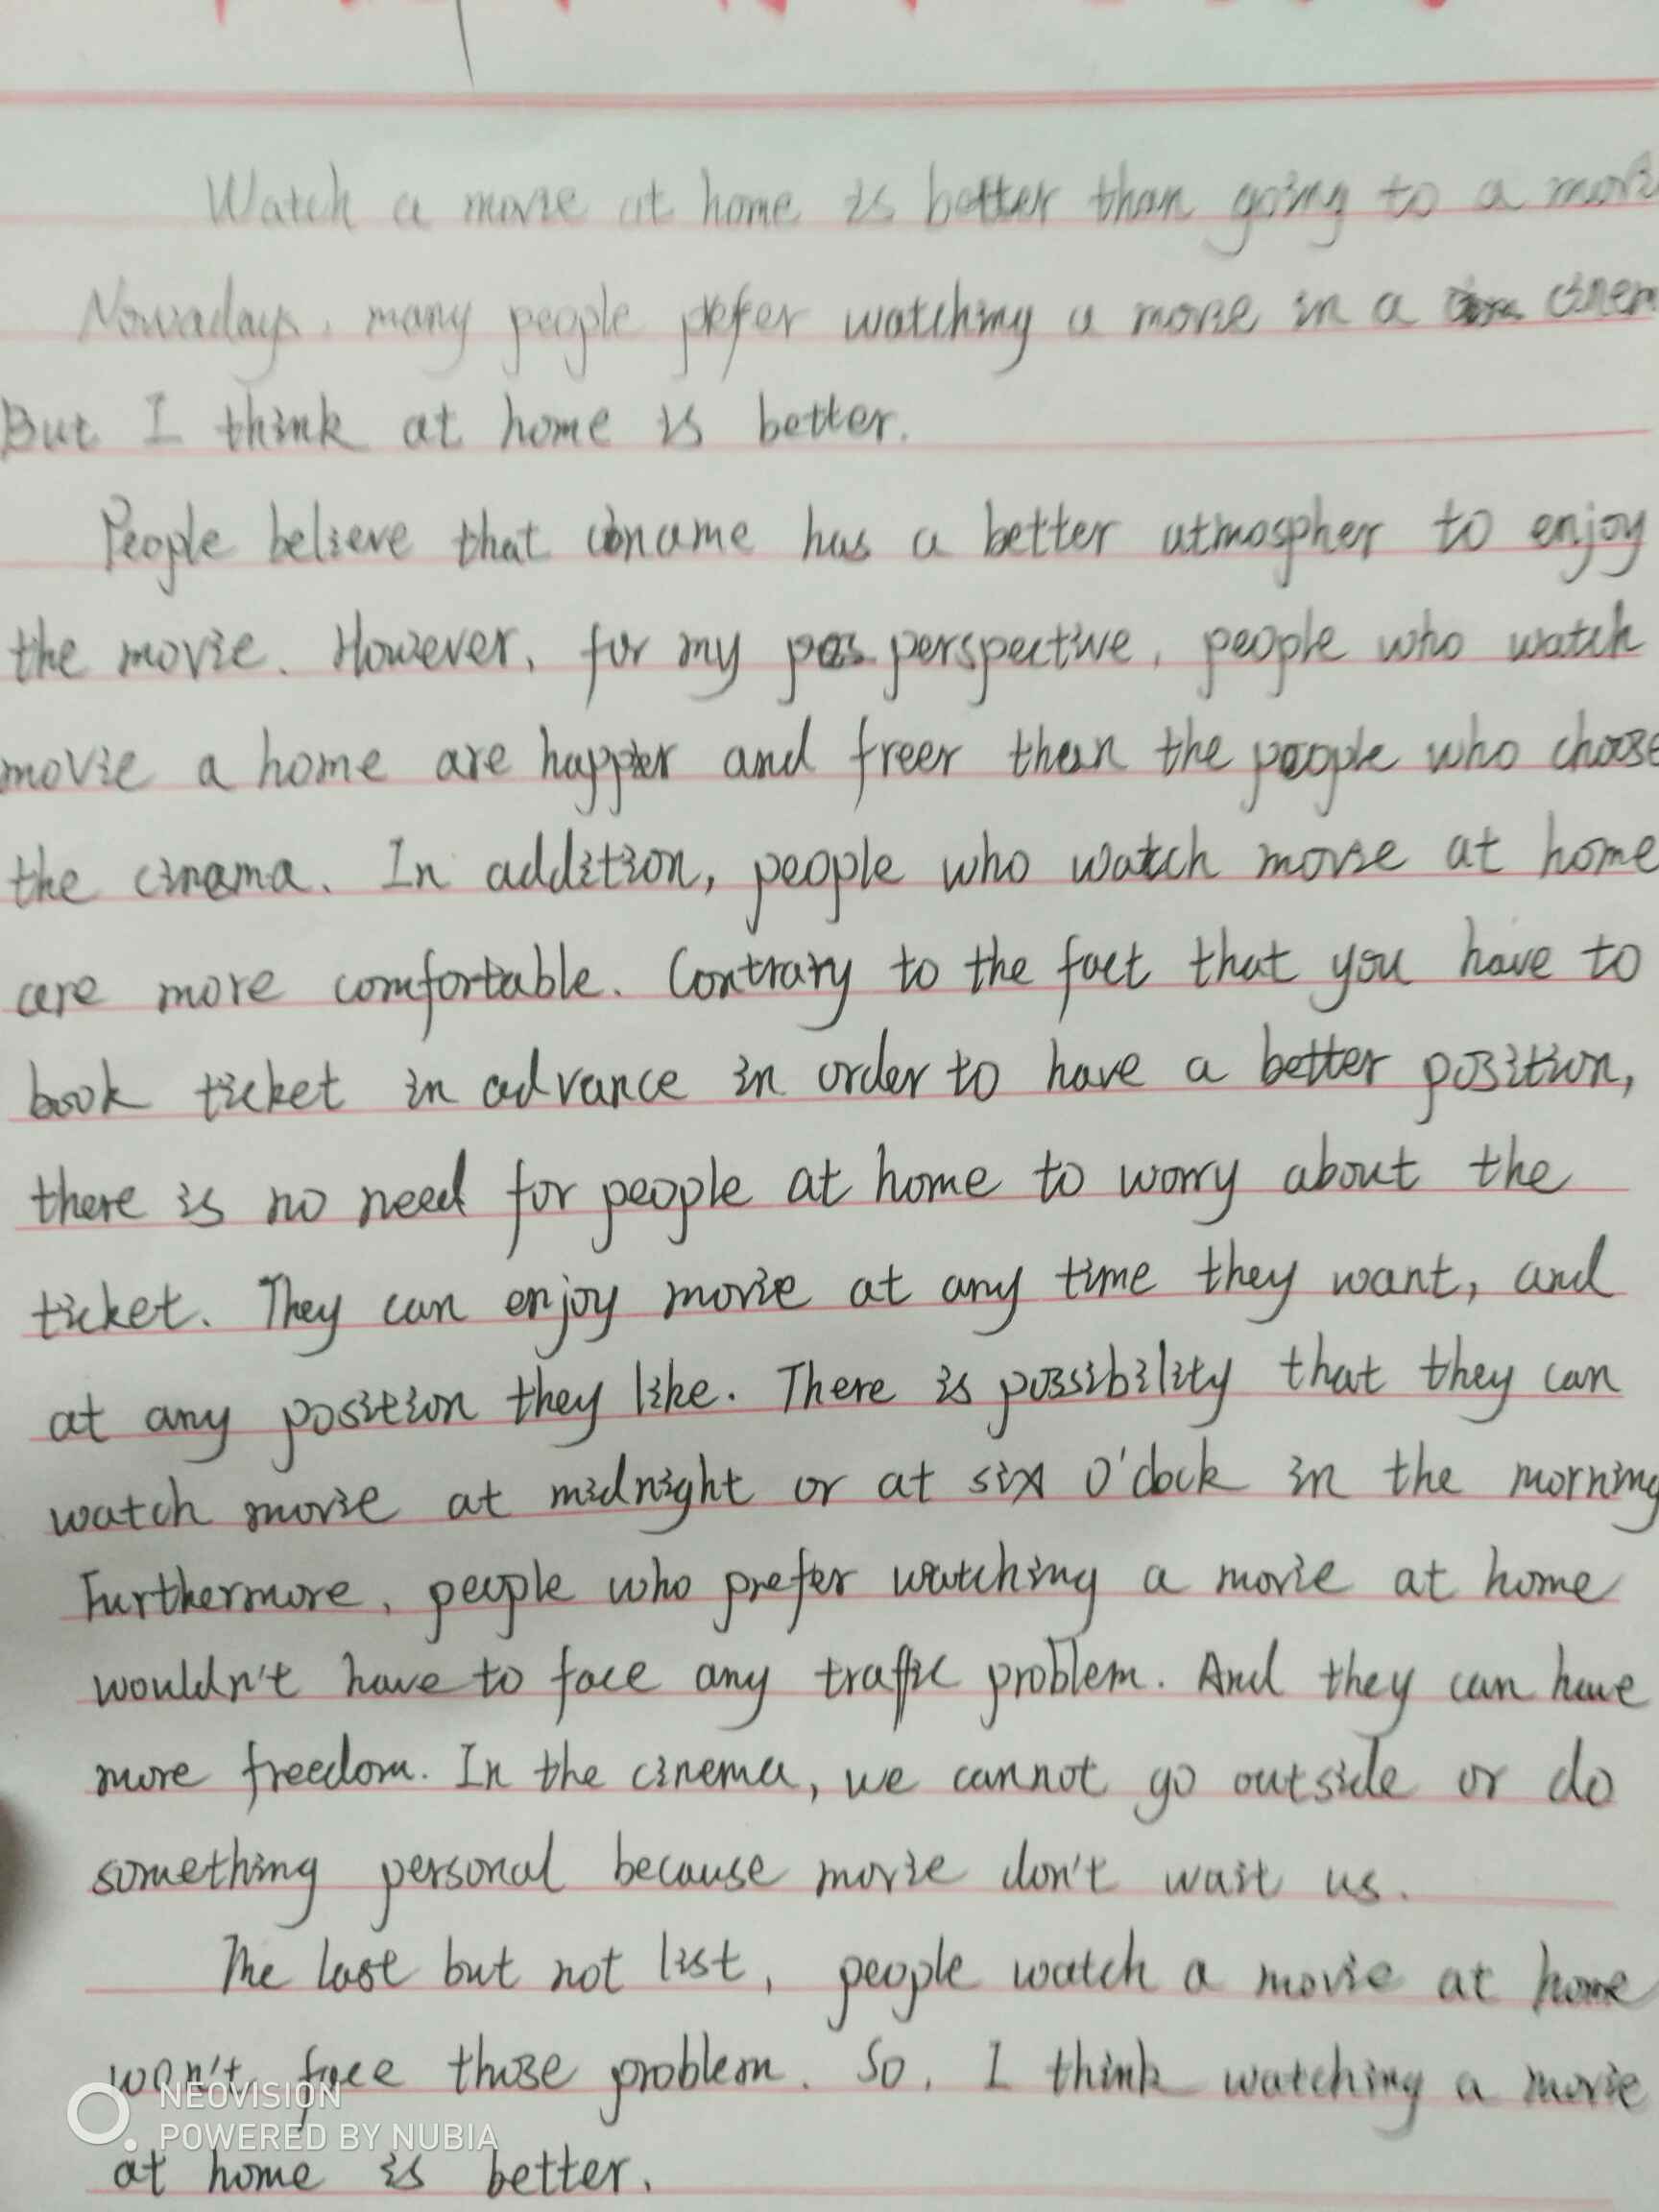 Watch a movie at home is better than going to a movie
Nowadays, many people prefer watching a movie in a cinem
But I think at home is better.
People believe that coname has a better atmospher to enjoy
the movie. However, for my pos perspective, people who watch
movie a home are happier and freer than the people who choose
the cinama. In addition, people who watch movie at home
are more comfortable. Contrary to the fact that you have to
book ticket in advance in order to have a better position,
there is no need for people at home to worry about the
ticket. They can enjoy movie at any time they want, and
at any position they like. There is possibility that they can
watch movie at midnight or at six o'clock in the morning
Furthermore, people who prefer watching a movie at home
wouldn't have to face any traffic problem. And they can have
more freedom. In the cinema, we cannot go outside or do
something personal because movie don't wait us.
The last but not list, people watch a movie at home
won't face those problem. So, I think watching a movie
at home is better.
NEOVISION
POWERED BY NUBIA